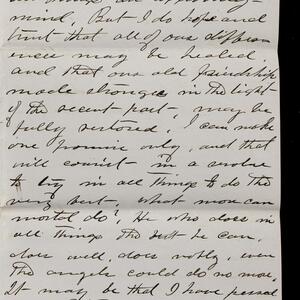 mind, But I do hope and
trust that all of our differen
nces may be healed
and that our old friendship
made stronger in the light
of the recent past, may be
fully restored, I can make
one promise only, and that
will consist in a resolve
to try in all things to do the
very best, what more can
mortal do? He who does in
all things the best he can,
does well, does nobly, even
the angels could do no more,
It may be that I have passed